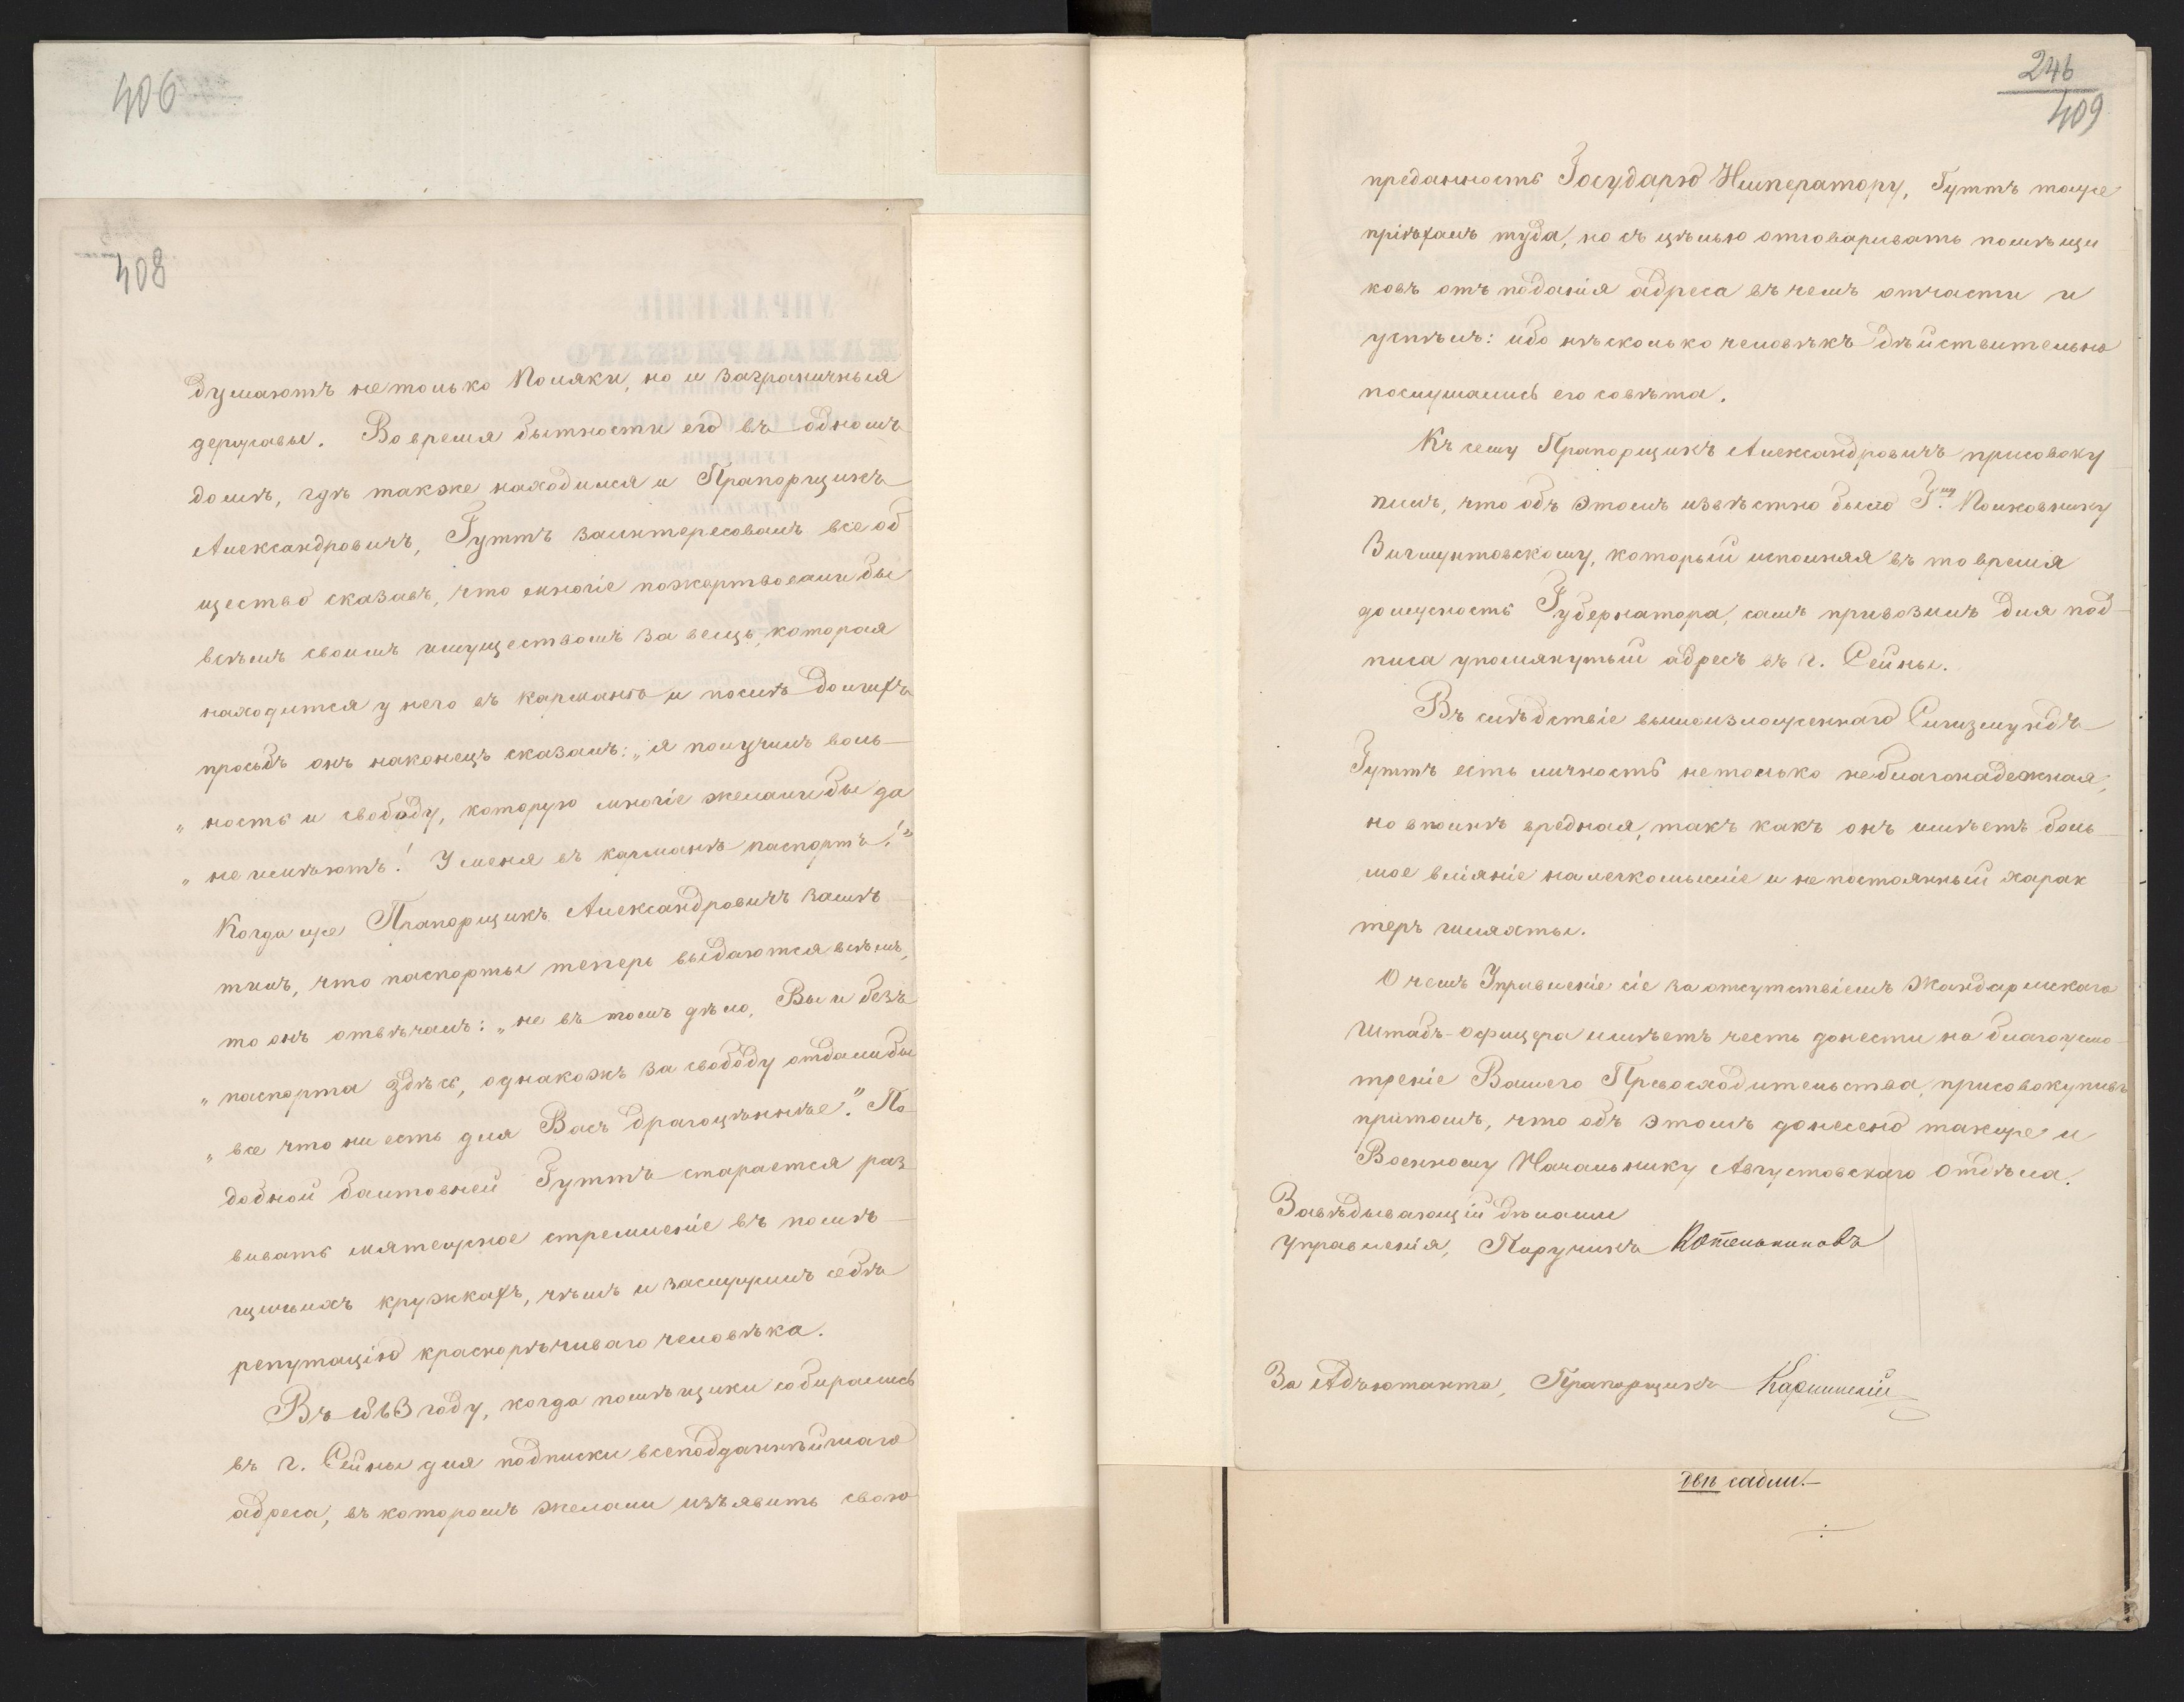 406
408
думаютъ нетолько Поляки, но и заграничныя
державы. Во время бытности его въ одномъ
домѣ, гдѣ также находился и Прапорщикъ
Александровичъ, Гуттъ заинтересовалъ все об
щество сказавъ, что многіе пожертвовали бы
всѣмъ своимъ имуществомъ за вещь, которая
находится у него въ карманѣ и послѣ долгихъ
просьбъ онъ наконецъ сказалъ: „я получилъ воль-
„ность и свободу, которую многіе желали бы да
„не имѣютъ! У меня въ карманѣ паспортъ!"
Когда же Прапорщикъ Александровичъ замѣ-
тилъ, что паспорты теперь выдаются всѣмъ,
то онъ отвѣчалъ: „не въ томъ дѣло, Вы и безъ
„паспорта здѣсь, однакожъ за свободу отдали бы
„все что ни есть для Васъ драгоцѣннѣе." По-
добной болтовней Гуттъ старается раз-
вивать мятежное стремленіе въ помѣ-
щичьихъ кружкахъ, чѣмъ и заслужилъ себѣ
репутацію краснорѣчиваго человѣка.
Въ 1863 году, когда помѣщики собирались
въ г. Сейны для подписки всеподданнѣйшаго
адреса, въ которомъ желали изъявить свою
246
409
преданность Государю Императору, Гуттъ тоже
пріѣхалъ туда, но съ цѣлью отговаривать помѣщи
ковъ отъ поданія адреса въ чемъ отчасти и
успѣлъ: ибо нѣсколько человѣкъ дѣйствительно
послушались его совѣта.
Къ сему Прапорщикъ Александровичъ присовоку
пилъ, что объ этомъ извѣстно было Г.ну Полковнику
Вичмунтовскому, который исполняя въ то время
должность Губернатора, самъ привозилъ для под-
писа упомянутый адресъ въ г. Сейны.
Въ слѣдствіе вышеизложеннаго Сигизмундъ
Гуттъ есть личность нетолько неблагонадежная,
но вполнѣ вредная, такъ какъ онъ имѣетъ боль-
шое вліяніе на легкомысліе и непостоянный харак
теръ шляхты.
О чемъ Управленіе сіе за отсутствіемъ Жандармскаго
Штабъ-Офицера имѣетъ честь донести на благоусмо-
трѣніе Вашего Превосходительства, присовокупивъ
притомъ, что объ этомъ донесено также и
Военному Начальнику Августовскаго Отдѣла.
Завѣдывающій дѣлами
Управленія, Поручикъ Котельниковъ
За Адъютанта, Прапорщикъ
двѣ сабли.